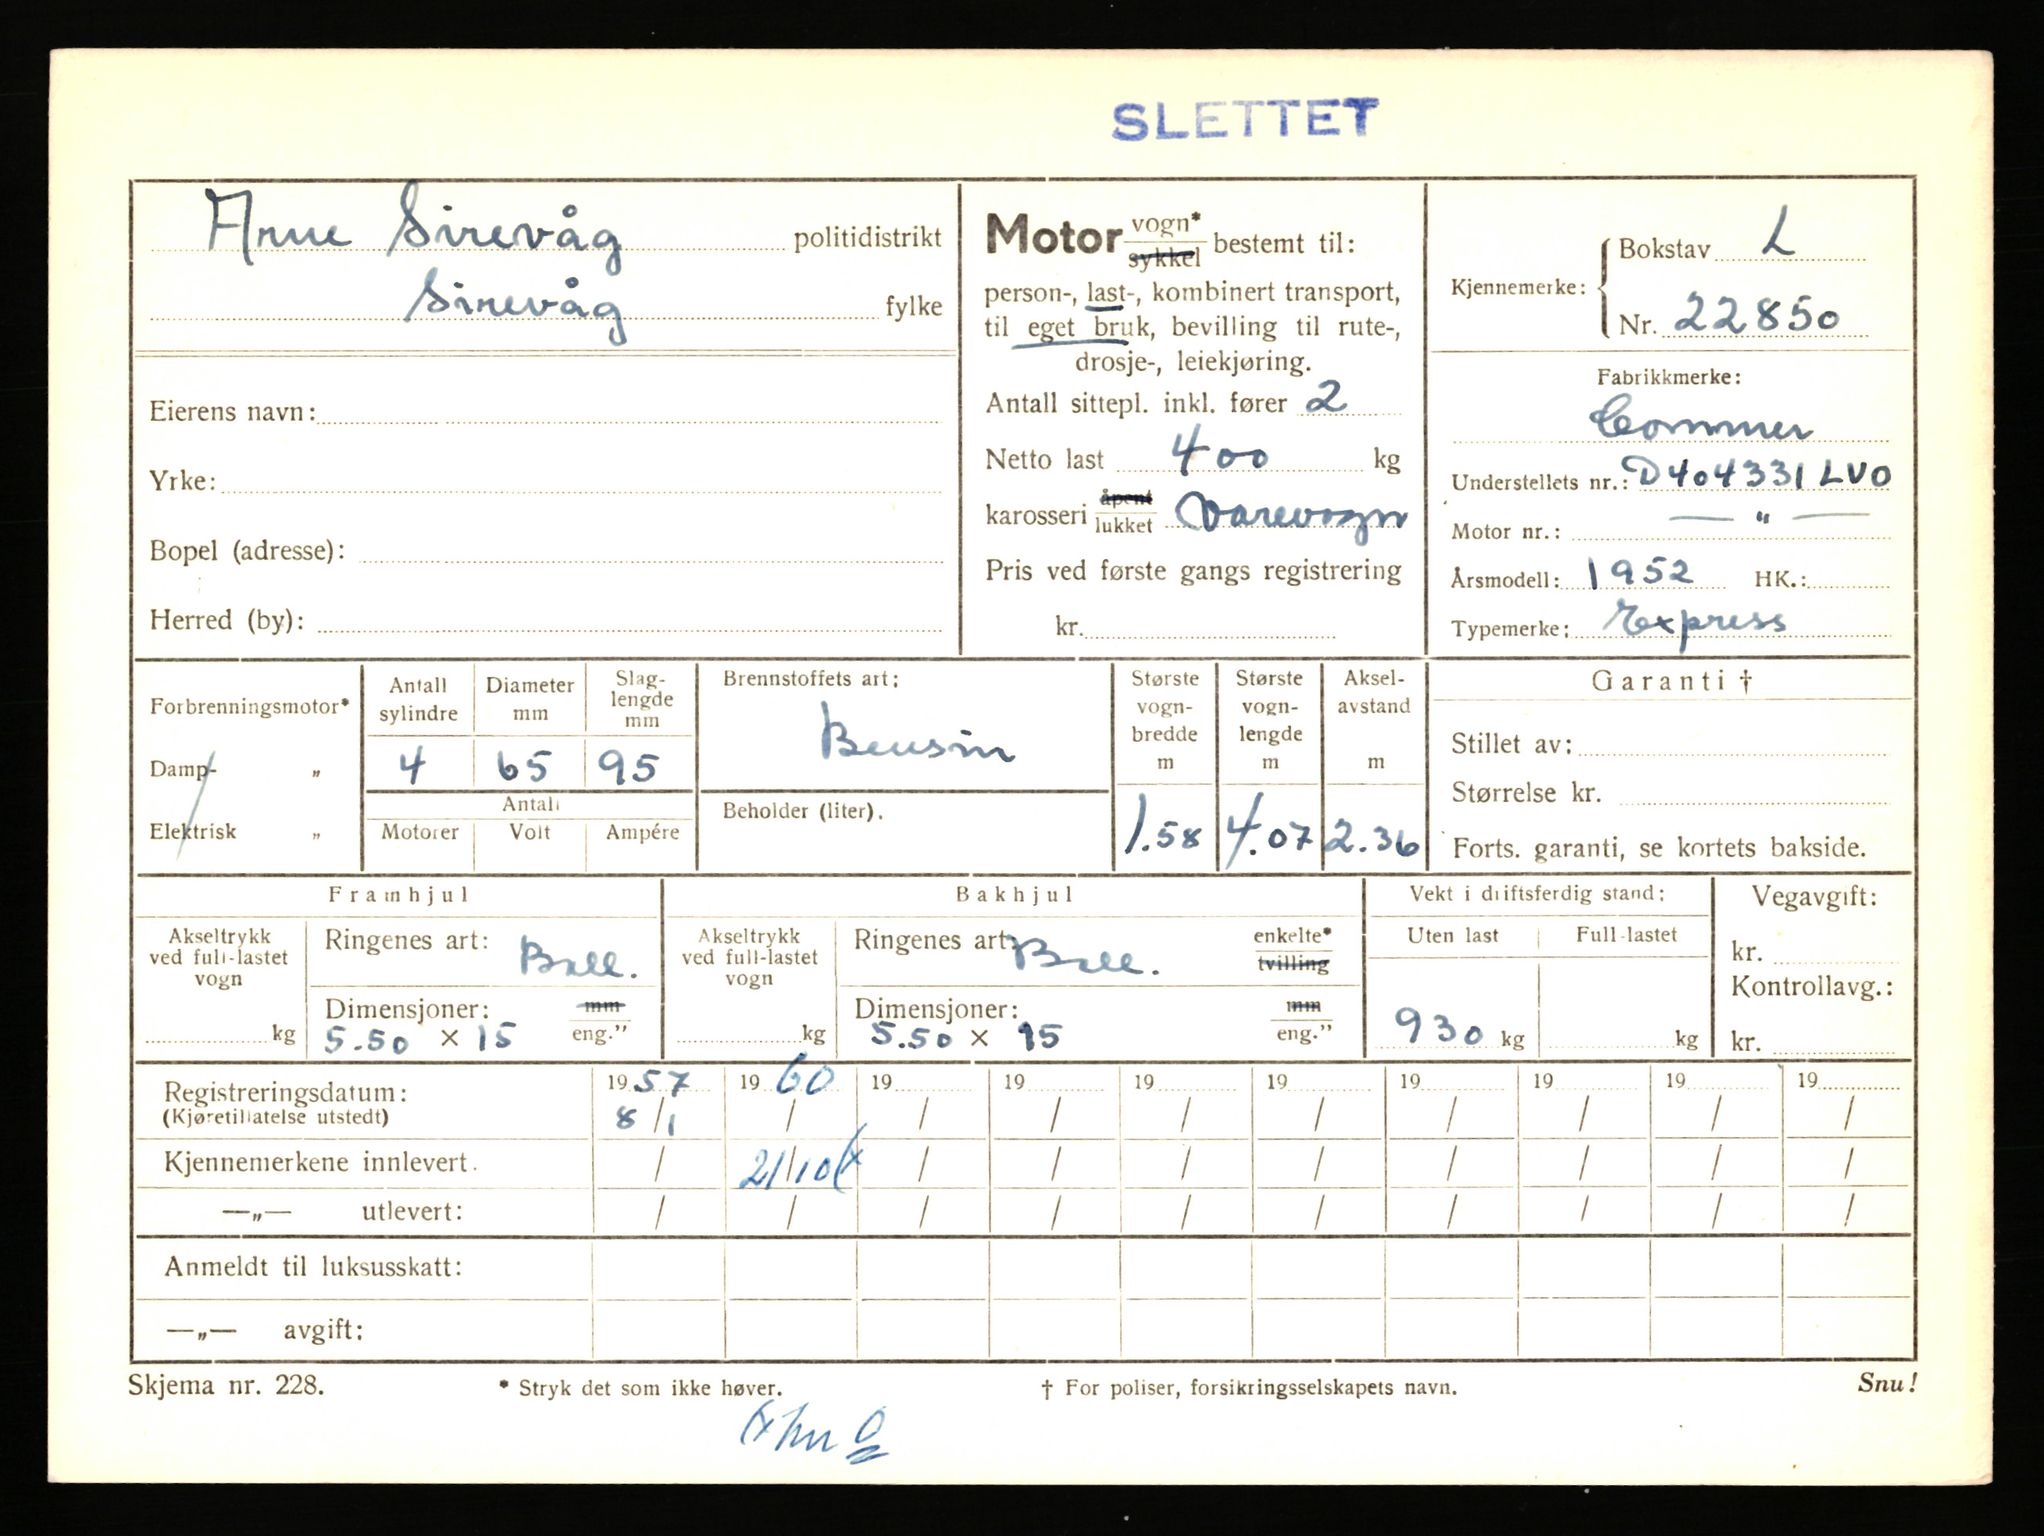 SLETTET
Arne Sirevåg politidistrikt
Sirevåg fylke
Eierens navn:
Yrke:
Bopel (adresse):
Herred (by):
Motor vogn* sykkel bestemt til:
person-, last-, kombinert transport,
til eget bruk, bevilling til rute-,
drosje-, leiekjøring.
Antall sittepl. inkl. fører 2
Netto last 400 kg
karosseri åpent lukket Varevogn
Pris ved første gangs registrering
kr.
Kjennemerke: Bokstav L
Nr. 22850
Fabrikkmerke:
Commer
Understellets nr.: D404331LVO
Motor nr.: — " —
Årsmodell: 1952 HK.:
Typemerke: Express
Forbrenningsmotor*
Damp- „
Elektrisk „
Antall sylindre
Diameter mm
Slag-
lengde
mm
4 65 95
Antall
Motorer Volt Ampére
Brennstoffets art:
Bensin
Beholder (liter).
Største
vogn-
bredde
m
1.58
Største
vogn-
lengde
m
4.07
Aksel-
avstand
m
2.36
Garanti †
Stillet av:
Størrelse kr.
Forts. garanti, se kortets bakside.
Framhjul
Akseltrykk
ved full-lastet
vogn
kg
Ringenes art: Ball.
Dimensjoner: mm
5.50 × 15 eng.”
Bakhjul
Akseltrykk
ved full-lastet
vogn
kg
Ringenes art: Ball. enkelte*
tvilling
Dimensjoner: mm
5.50 × 15 eng.”
Vekt i driftsferdig stand:
Uten last Full-lastet
930 kg kg
Vegavgift:
kr.
Kontrollavg.:
kr.
Registreringsdatum: 1957 1960 19 19 19 19 19 19 19 19
(Kjøretillatelse utstedt) 8/1 / / / / / / / / /
Kjennemerkene innlevert. / 21/10 (x / / / / / / / /
—„— utlevert: / / / / / / / / / /
Anmeldt til luksusskatt:
—„— avgift:
Skjema nr. 228. * Stryk det som ikke høver. † For poliser, forsikringsselskapets navn. Snu!